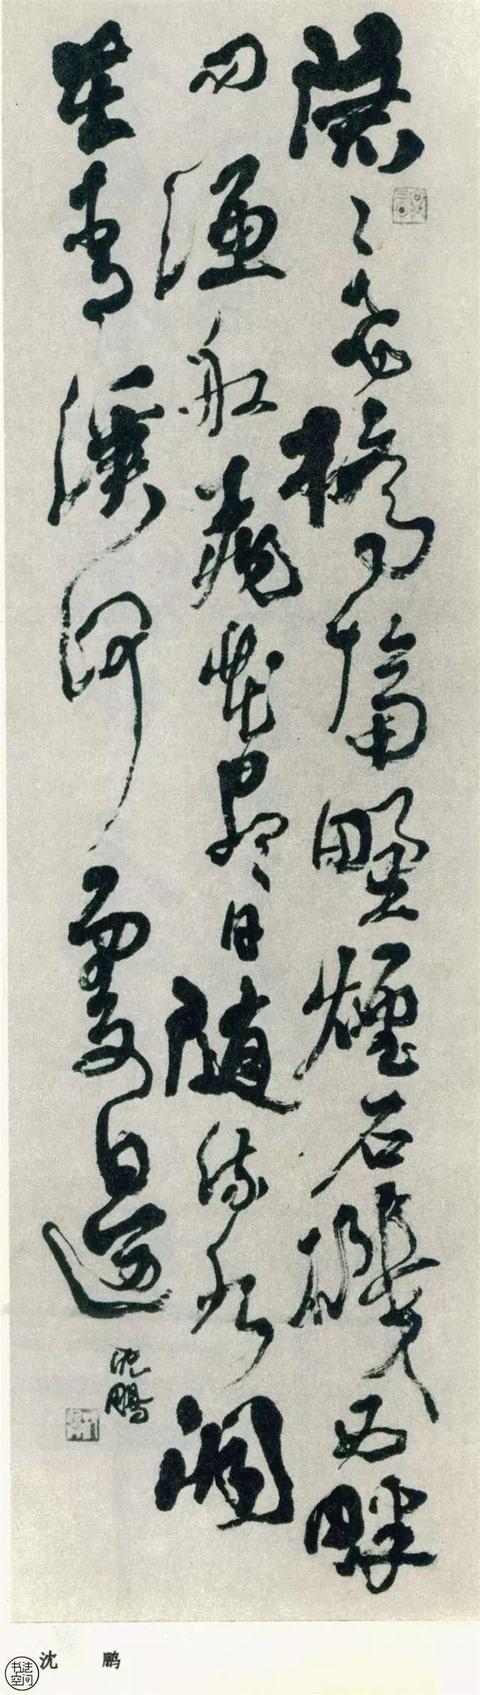 隱〻飛橋隔野煙石磯西畔
問漁船桃花盡日隨流水洞
在青溪何處邊
沈鵬
沈鹏
书法空间